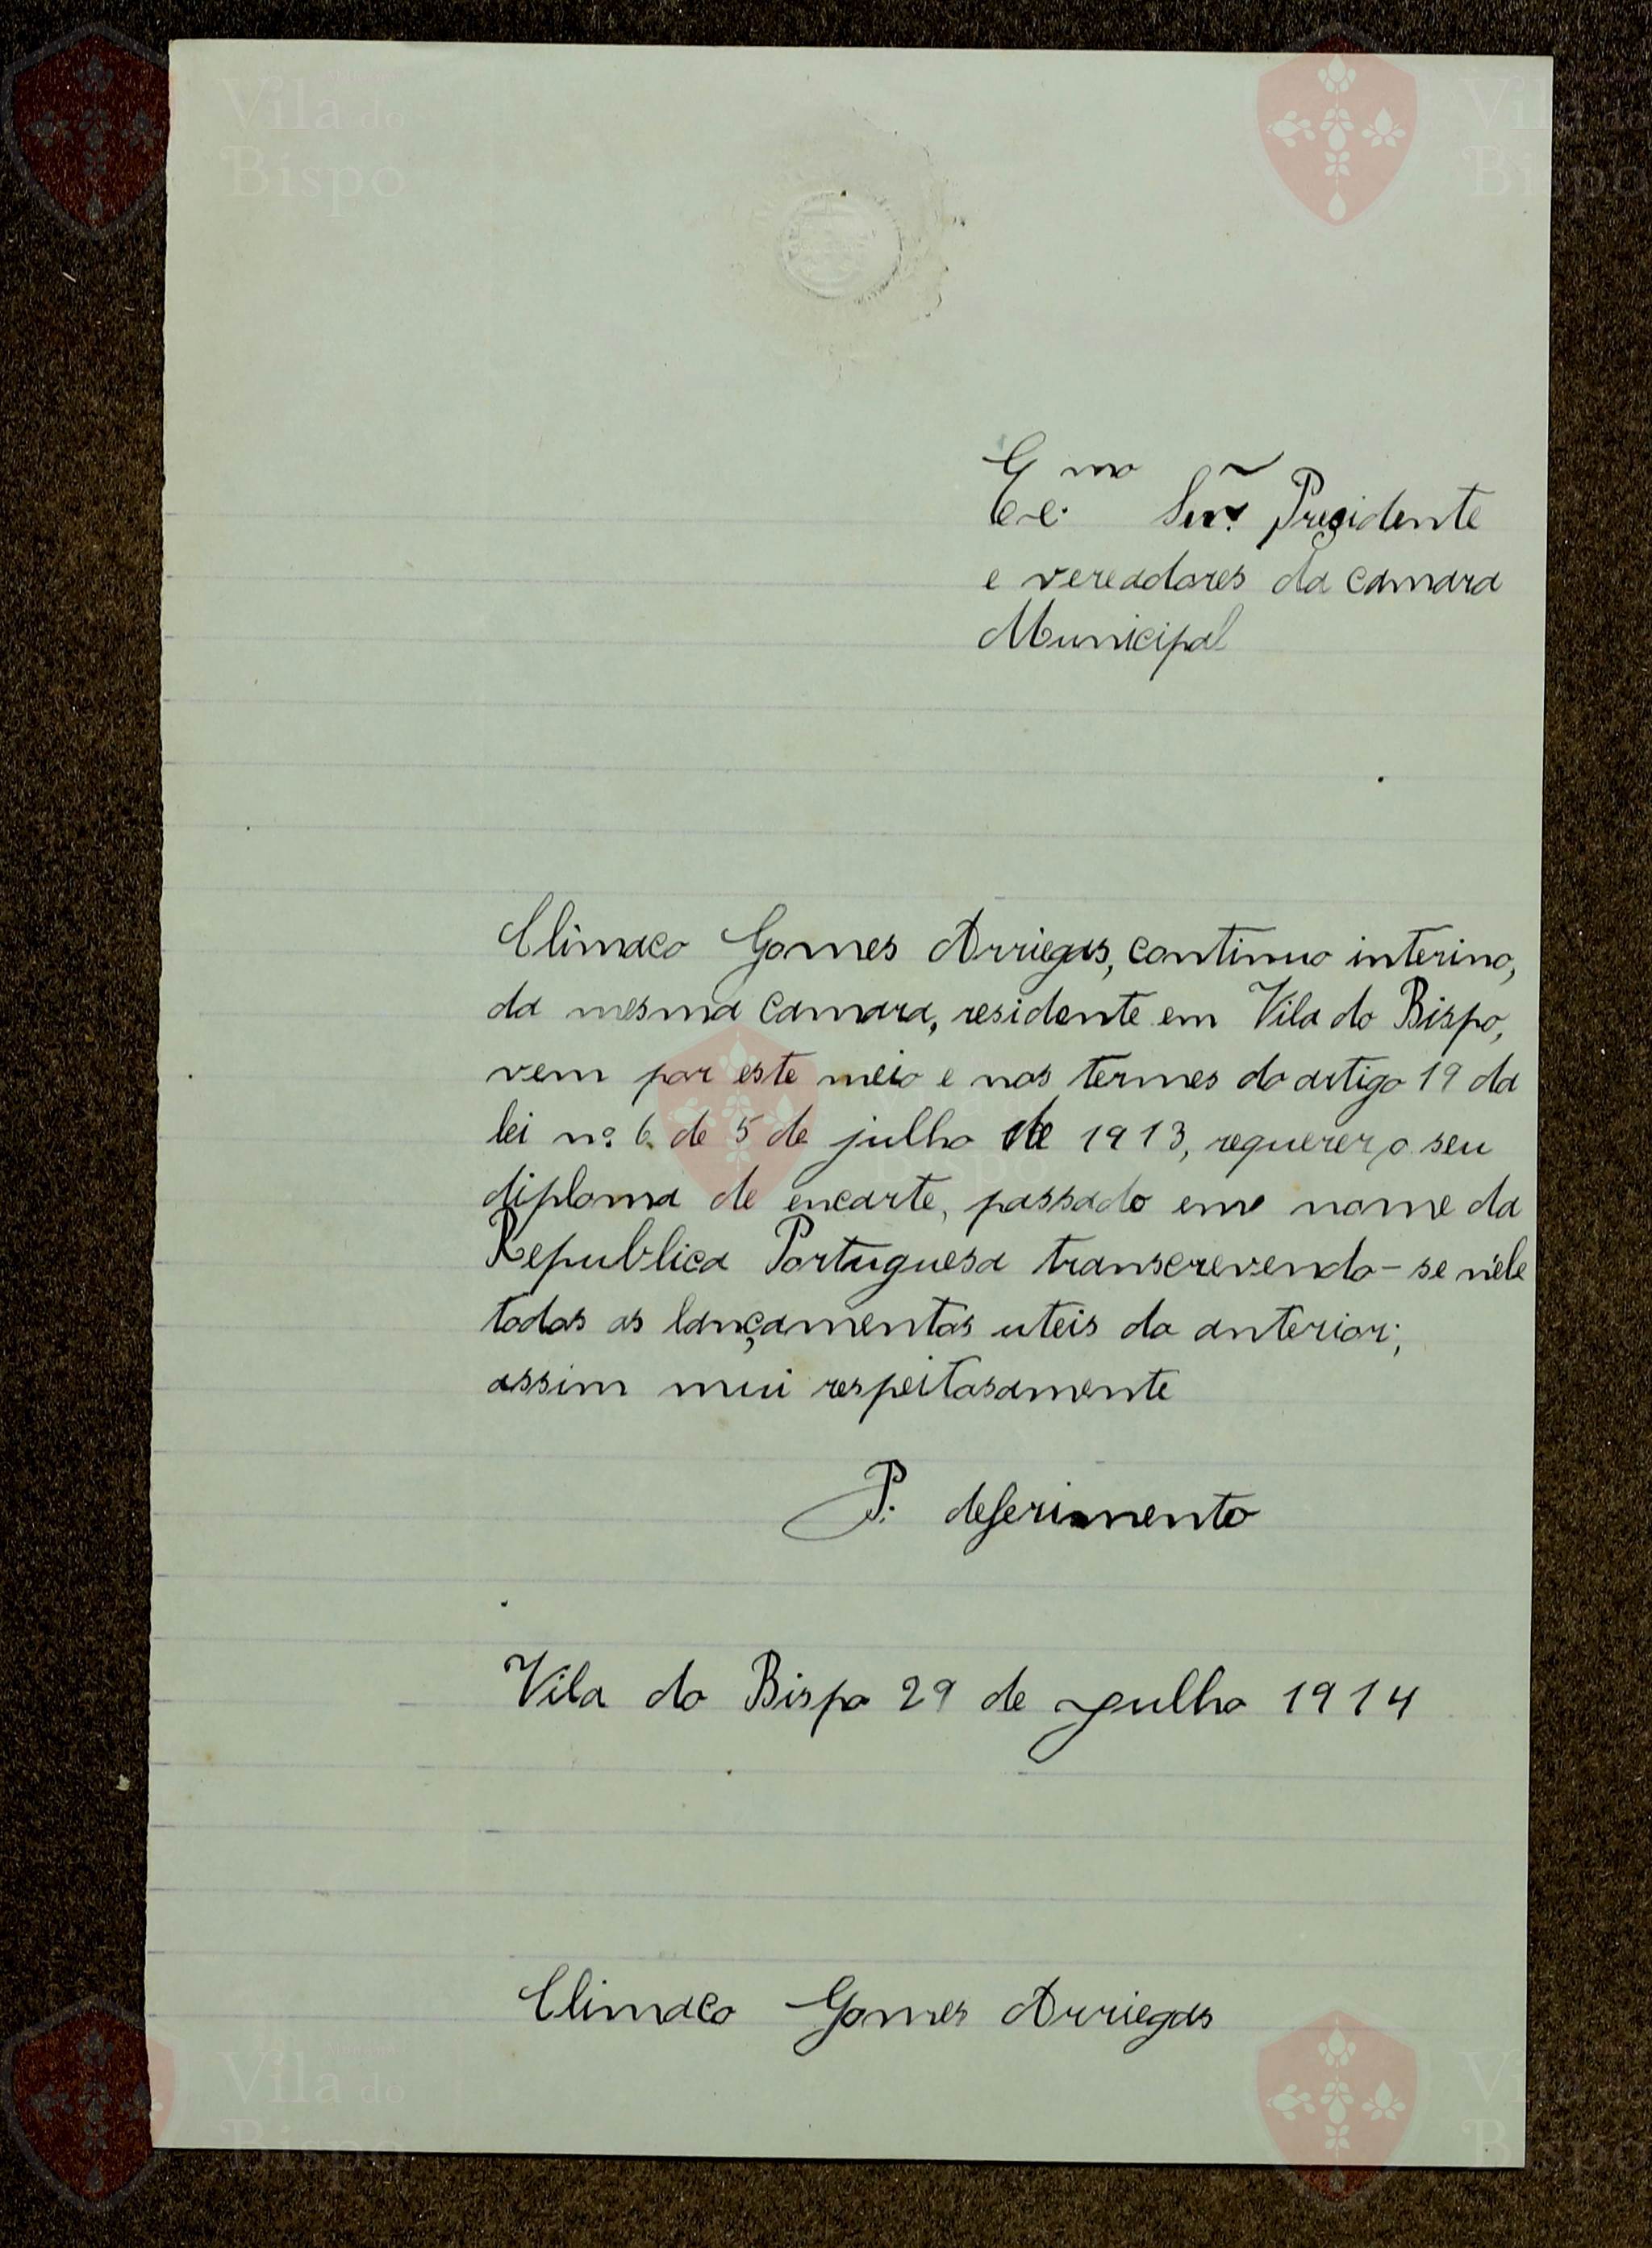 Vila do
Bispo
Exmo Snr. Presidente
e vereadores da camara
Municipal
Climaco Gomes Arriegas, continuo interino,
da mesma camara, residente em Vila do Bispo,
vem por este meio e nos termes do artigo 19 da
lei nº 6 de 5 de julho de 1913, requerer o seu
diploma de encarte, passado em nome da
Republica Portuguesa transcrevendo-se n'ele
todos os lançamentos uteis do anterior;
assim mui respeitosamente
P. deferimento
Vila do Bispo 29 de julho 1914
Climaco Gomes Arriegas
Vila do
Bispo